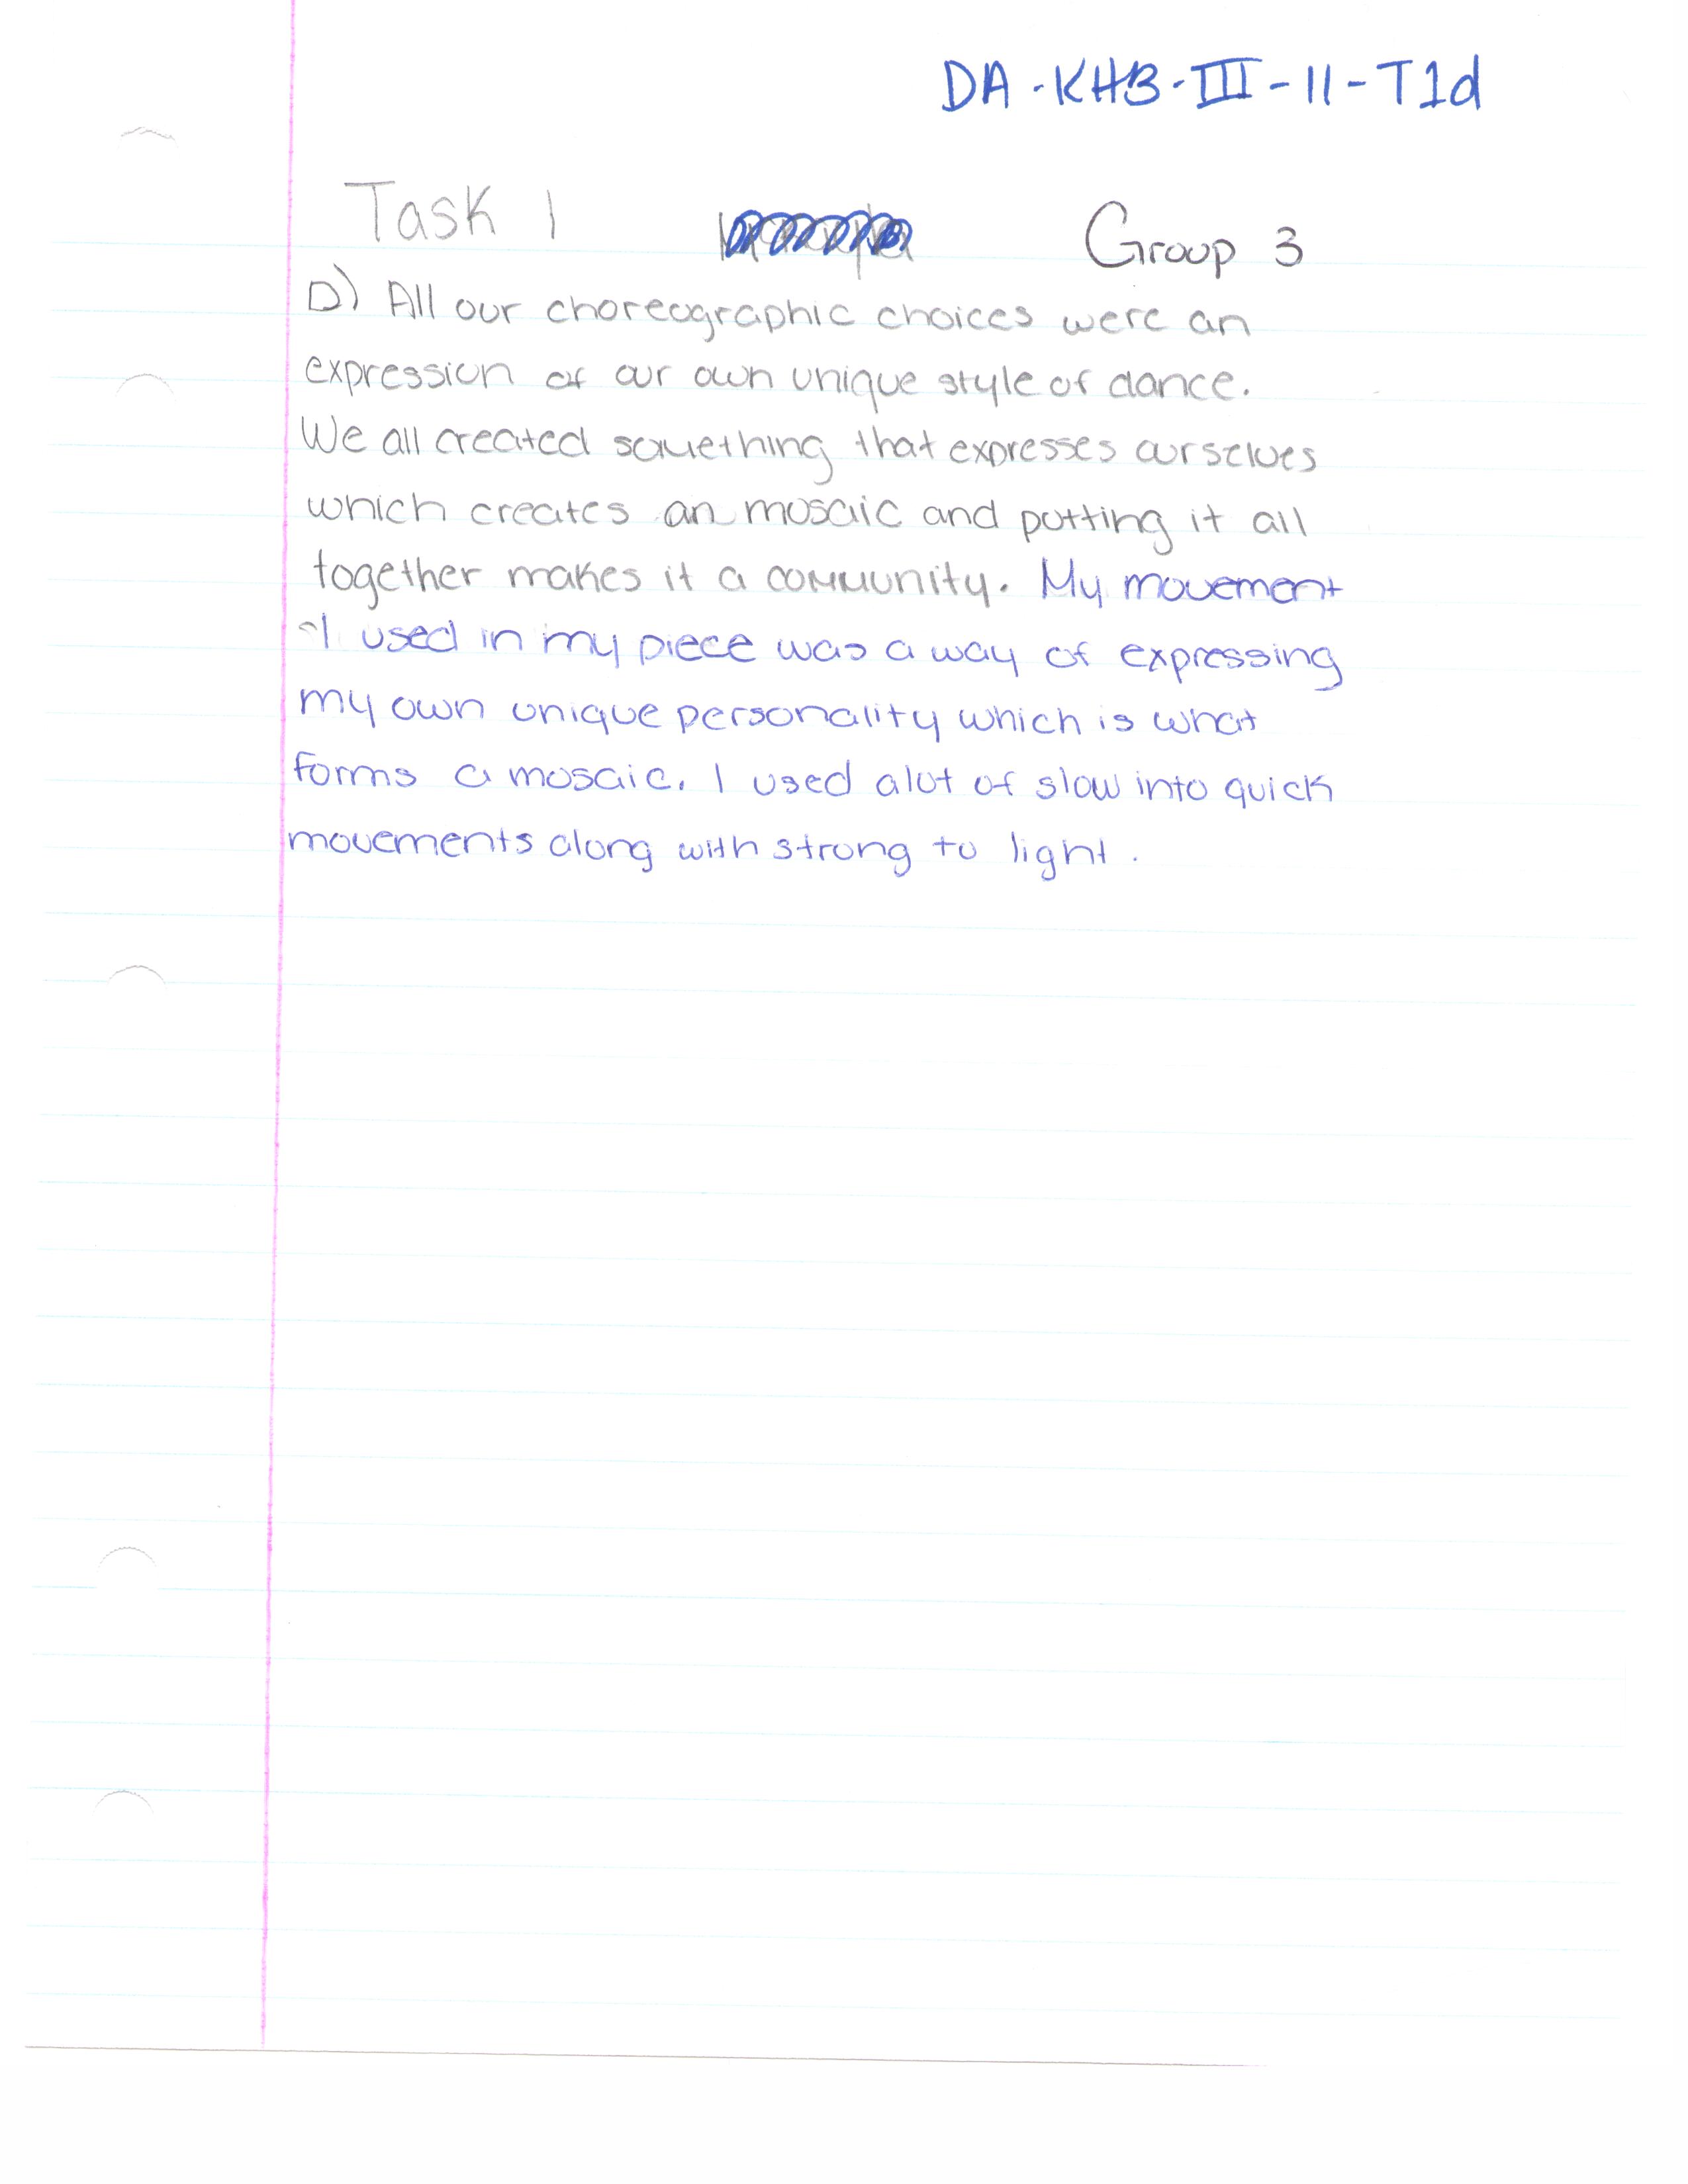 DA-KHB-III-11-T1d
Task 1 Group 3
D) All our choreographic choices were an
expression of our own unique style of dance.
We all created something that expresses ourselves
which creates an mosaic and putting it all
together makes it a community. My movement
I used in my piece was a way of expressing
my own unique personality which is what
forms a mosaic. I used alot of slow into quick
movements along with strong to light.